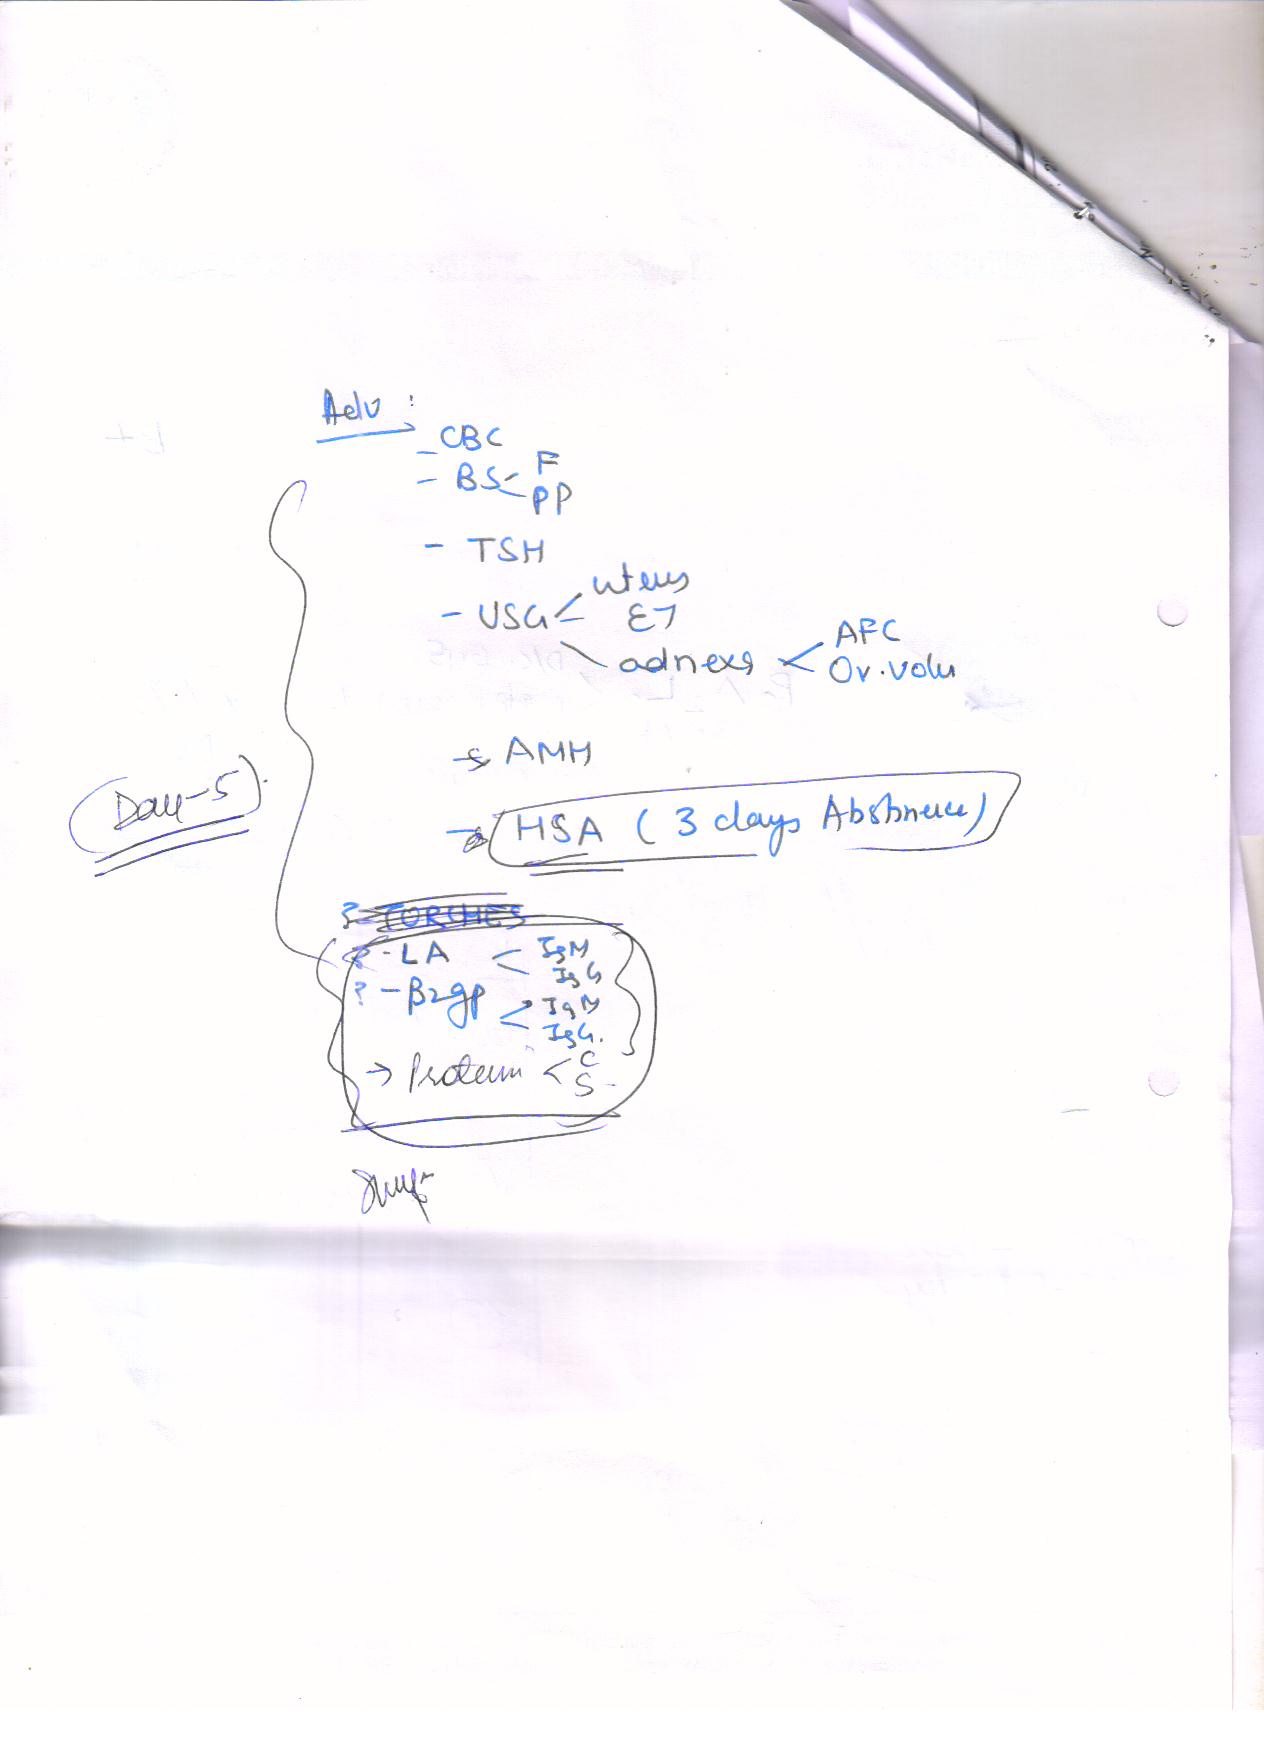 Adv :
- CBC
- BS < F
PP
- TSH
- USG < uterus
ET
adnexa < AFC
Ov. volu
→ AMH
(Day-5).
→ HSA ( 3 days Abstinence)
? - TORCHES
? - LA < IgM
IgG
? - β2gp < IgM
IgG.
→ Protein < C
S